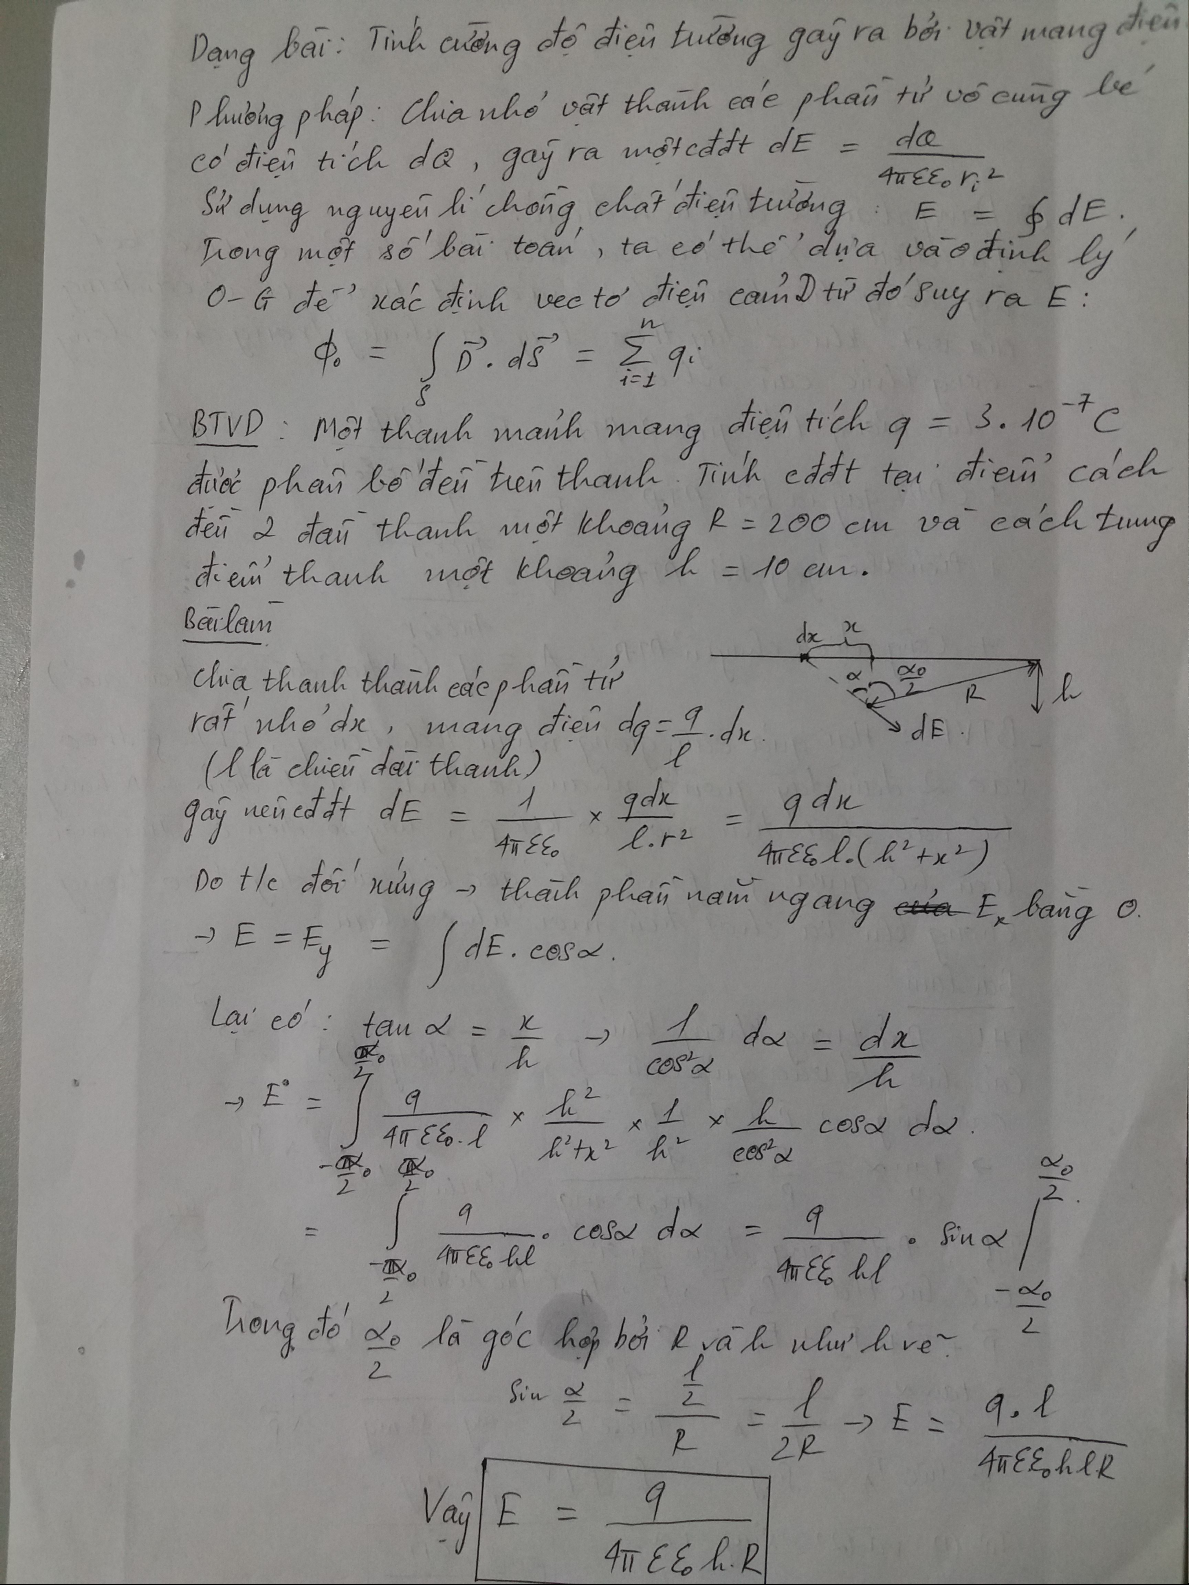 Dạng bài: Tính cường độ điện trường gây ra bởi vật mang điện
Phương pháp: Chia nhỏ vật thành các phần tử vô cùng bé
có điện tích dQ, gây ra một cđđt dE = dQ / 4πεε₀rᵢ²
Sử dụng nguyên lí chồng chất điện trường: E = ∮ dE.
Trong một số bài toán, ta có thể dựa vào định lý
O-G để xác định vectơ điện cảm D từ đó suy ra E:
ϕ₀ = ∫_S D⃗. dS⃗ = Σ_{i=1}^{n} qᵢ
BTVD: Một thanh mảnh mang điện tích q = 3.10⁻⁷ C
được phân bố đều trên thanh. Tính cđđt tại điểm cách
đều 2 đầu thanh một khoảng R = 200 cm và cách trung
điểm thanh một khoảng h = 10 cm.
Bài làm
dx x
α α₀/2 R h
dE
Chia thanh thành các phần tử
rất nhỏ dx, mang điện dq = q/l . dx.
(l là chiều dài thanh)
gây nên cđđt dE = 1/4πεε₀ × qdx/l.r² = qdx / 4πεε₀l.(h²+x²)
Do t/c đối xứng → thành phần nằm ngang của Eₓ bằng 0.
→ E = E_y = ∫ dE. cosα.
Lại có: tan α = x/h → 1/cos²α dα = dx/h
→ E = ∫_{-α₀/2}^{α₀/2} q/4πεε₀.l × h²/h²+x² × 1/h² × h/cos²α cosα dα.
= ∫_{-α₀/2}^{α₀/2} q/4πεε₀hl . cosα dα = q/4πεε₀hl . sinα |_{-α₀/2}^{α₀/2}.
Trong đó α₀/2 là góc hợp bởi R và h như h vẽ.
sin α/2 = (l/2)/R = l/2R → E = q.l / 4πεε₀hlR
Vậy E = q / 4πεε₀h.R